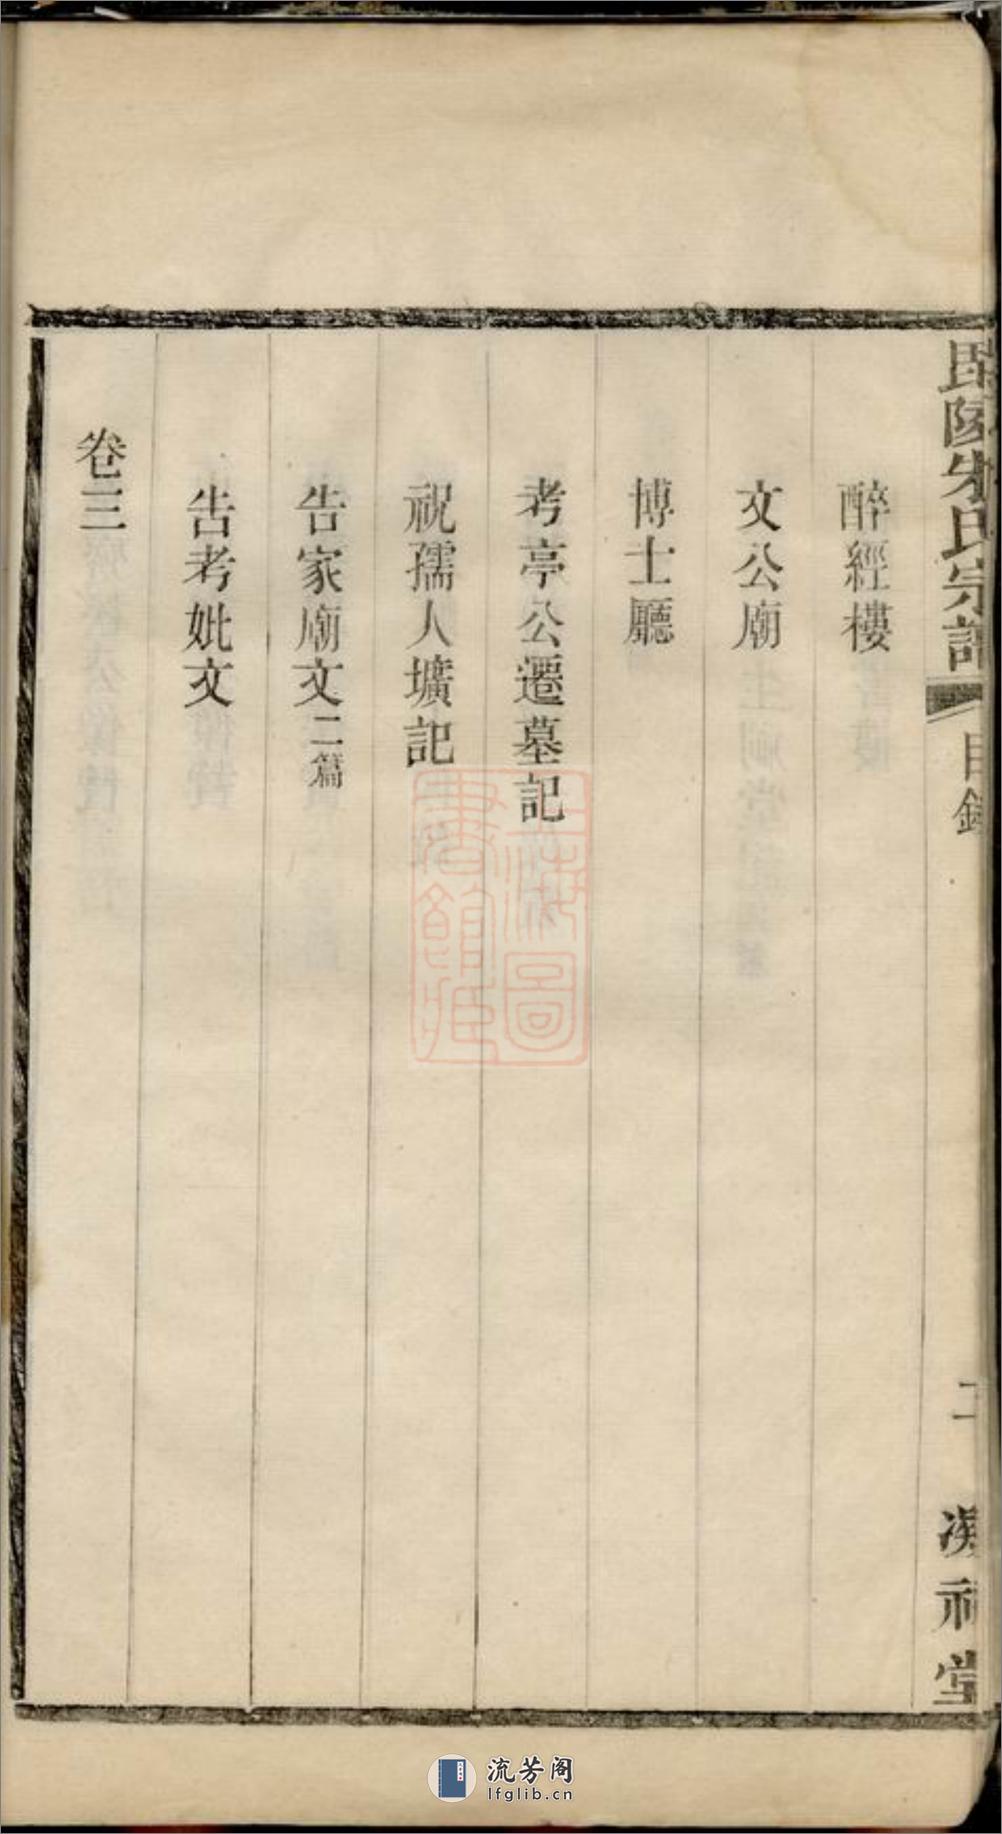 毘陵朱氏宗譜
目錄
二
凝祉堂
醉經樓
文公廟
博士廳
考亭公遷墓記
祝孺人壙記
告家廟文二篇
告考妣文
卷三
上海圖
書館藏
流芳阁
lfglib.cn